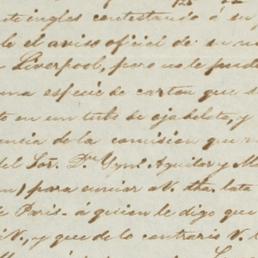 ute ingles contestando á su
le el aviso oficial de su no
Liverpool, pero no le pude
una especie de carton que s
to en un tubo de ojadelata, y
encia de la comision que
del Sor. Dn. Ygno. Aguilar y M
para enviar a V. dha. lata
de Paris á quien le digo que
V., y que de lo contrario V. t